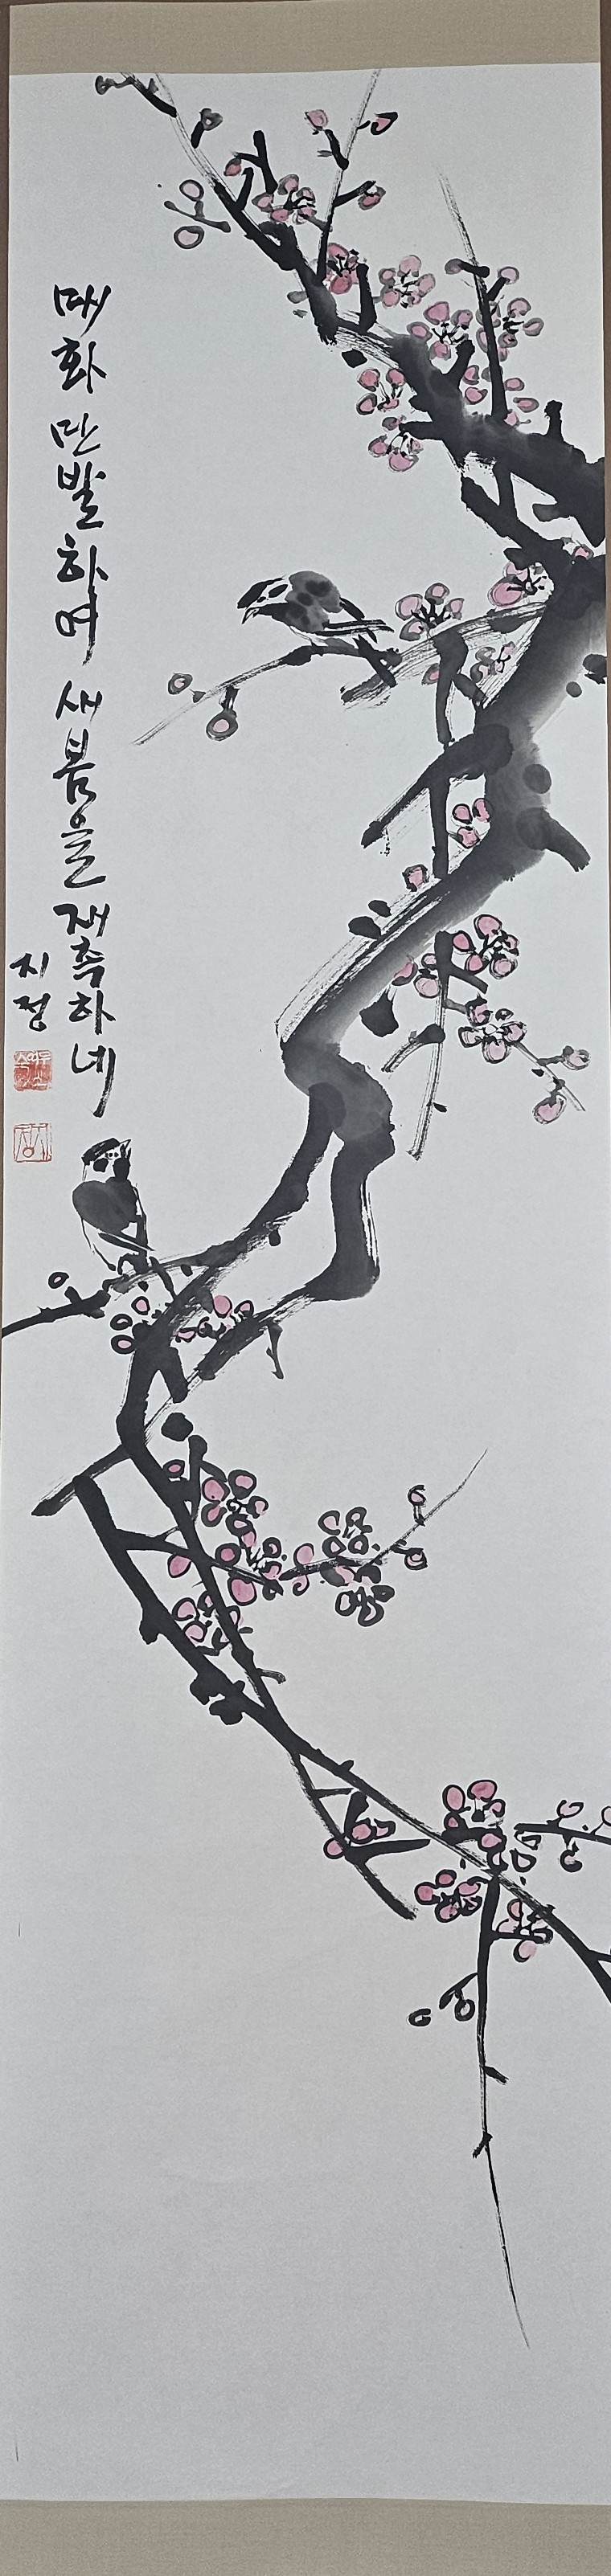 매화 만발하며 새봄을 재촉하네
지정